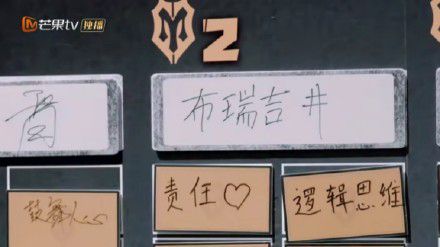 芒果tv 独播
M2
布瑞吉井
鼓舞人心
责任♡
逻辑思维